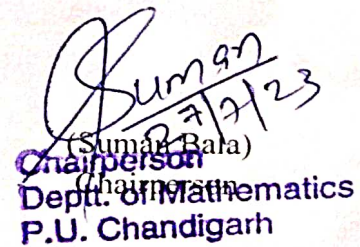 Suman
27/7/23
(Suman Bala)
Chairperson
Chairperson
Deptt. of Mathematics
P.U. Chandigarh